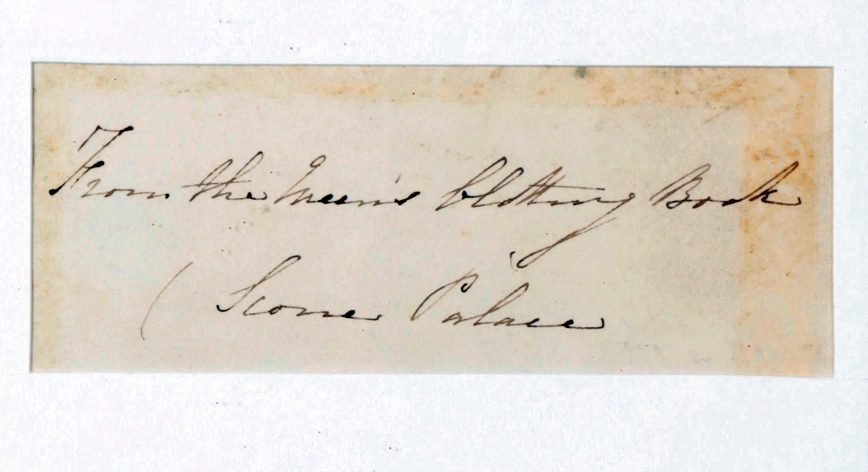 From the Queen's blotting Book
( Scone Palace